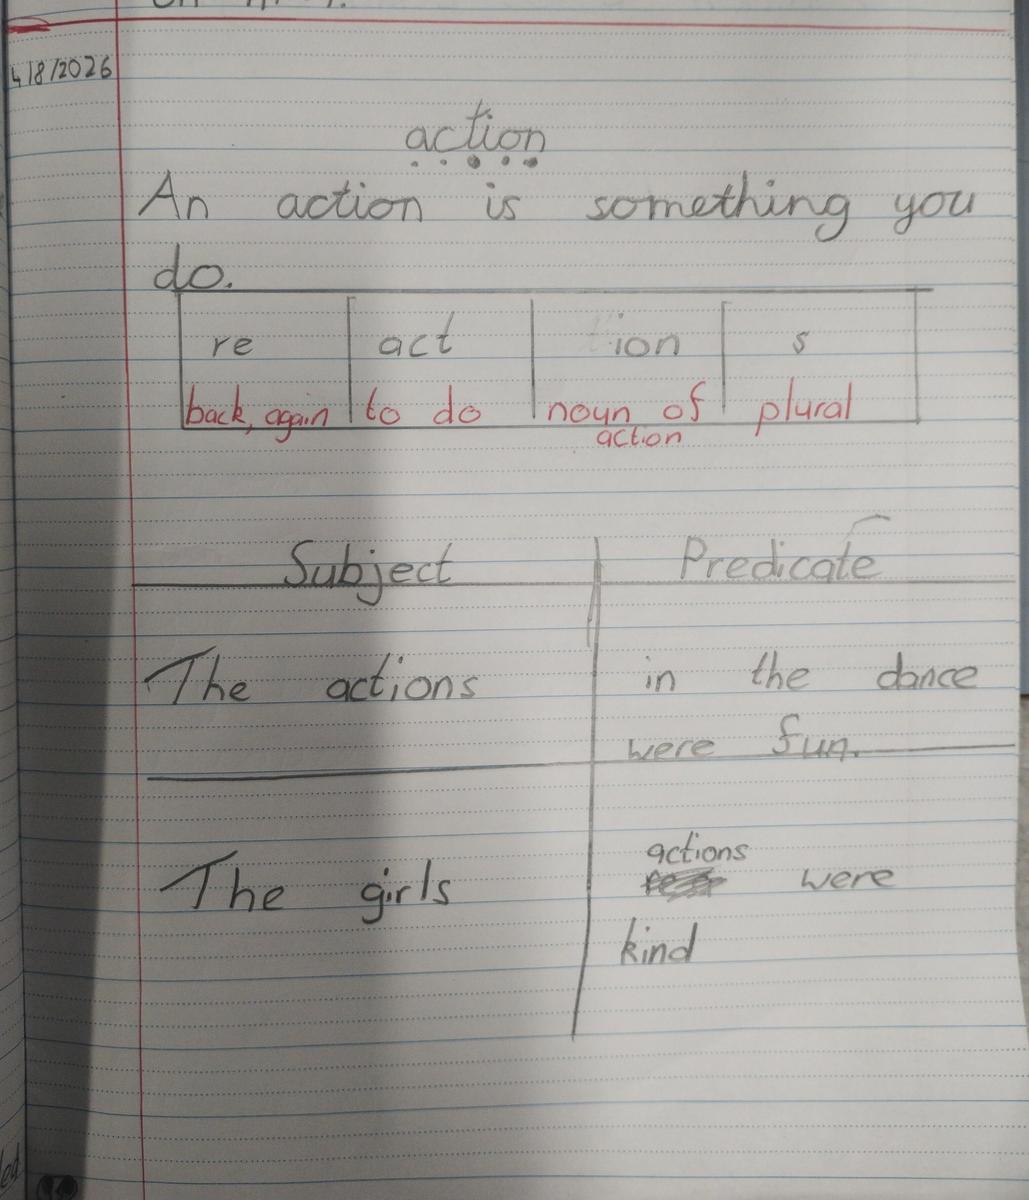 4/8/2026
action
An action is something you
do.
re act ion s
back, again to do noun of plural
action
Subject Predicate
The actions in the dance
were fun.
actions
The girls were
kind